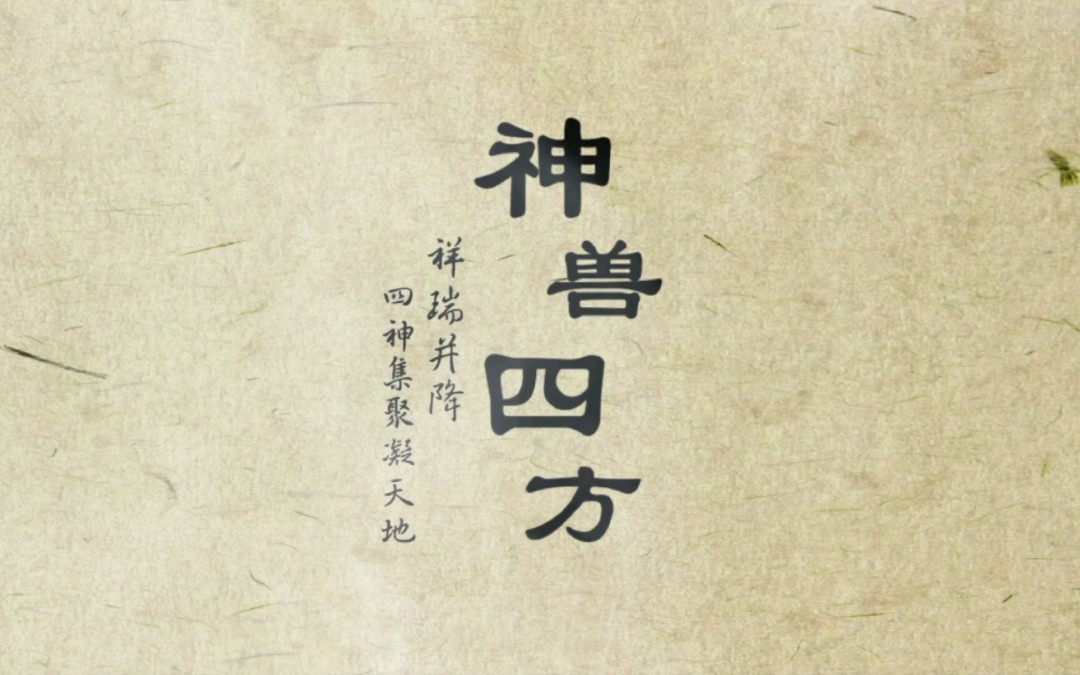 神兽四方
祥瑞并降
四神集聚凝天地